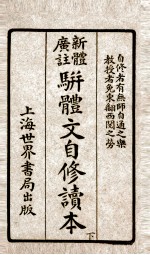 自修者有無師自通之樂
教授者免東翻西閱之勞
新體
廣註
駢體文自修讀本
下
上海世界書局出版